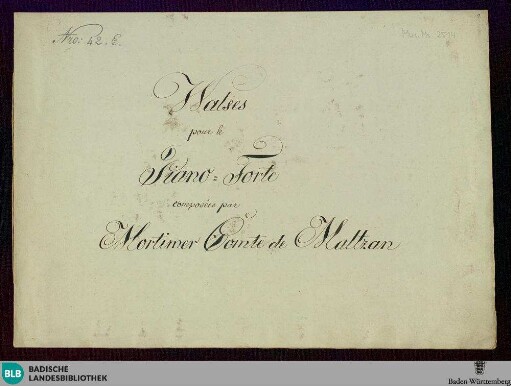 Nro: 42. E.
Walses
pour le
Piano=Forte
composées par
Mortimer Comte de Maltzan
BLB
BADISCHE
LANDESBIBLIOTHEK
Baden-Württemberg